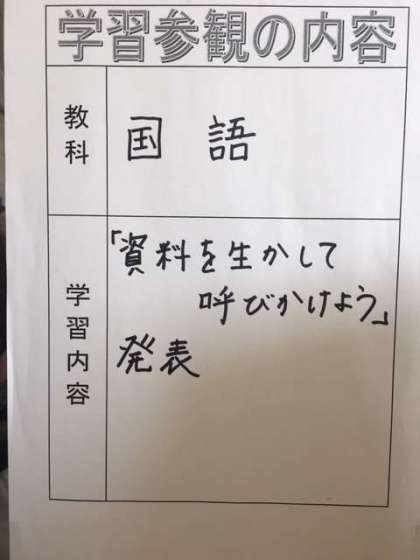 学習参観の内容
教科
国語
学習内容
「資料を生かして
呼びかけよう」
発表